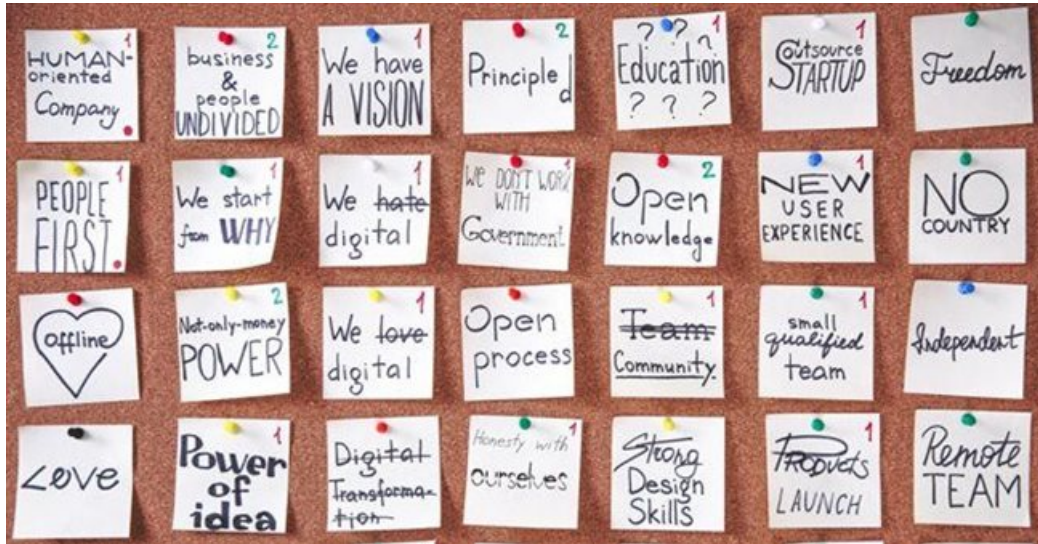 HUMAN-
oriented
Company
1
business
&
people
UNDIVIDED
2
We have
A VISION
1
Principled
2
? ? ?
Education
? ? ?
1
Outsource
STARTUP
1
Freedom
PEOPLE
FIRST
1
We start
from WHY
1
We hate
digital
1
We DON'T WORK
WITH
Government
1
Open
knowledge
2
NEW
USER
EXPERIENCE
1
NO
COUNTRY
offline
Not-only-money
POWER
2
We love
digital
1
Open
process
Team
Community
1
small
qualified
team
1
Independent
Love
Power
of
idea
1
Digital
Transforma-
tion
Honesty with
ourselves
1
Strong
Design
Skills
Products
LAUNCH
1
Remote
TEAM